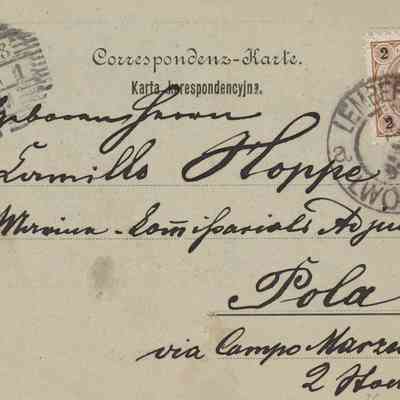 Correspondenz-Karte.
Karta korespondencyjna.
2
2
LEMBER
LWÓW
geborenen Herrn
Camillo Hoppe
Marine-Kommissariats Adju
Pola
via Campo Marz
2 Sto